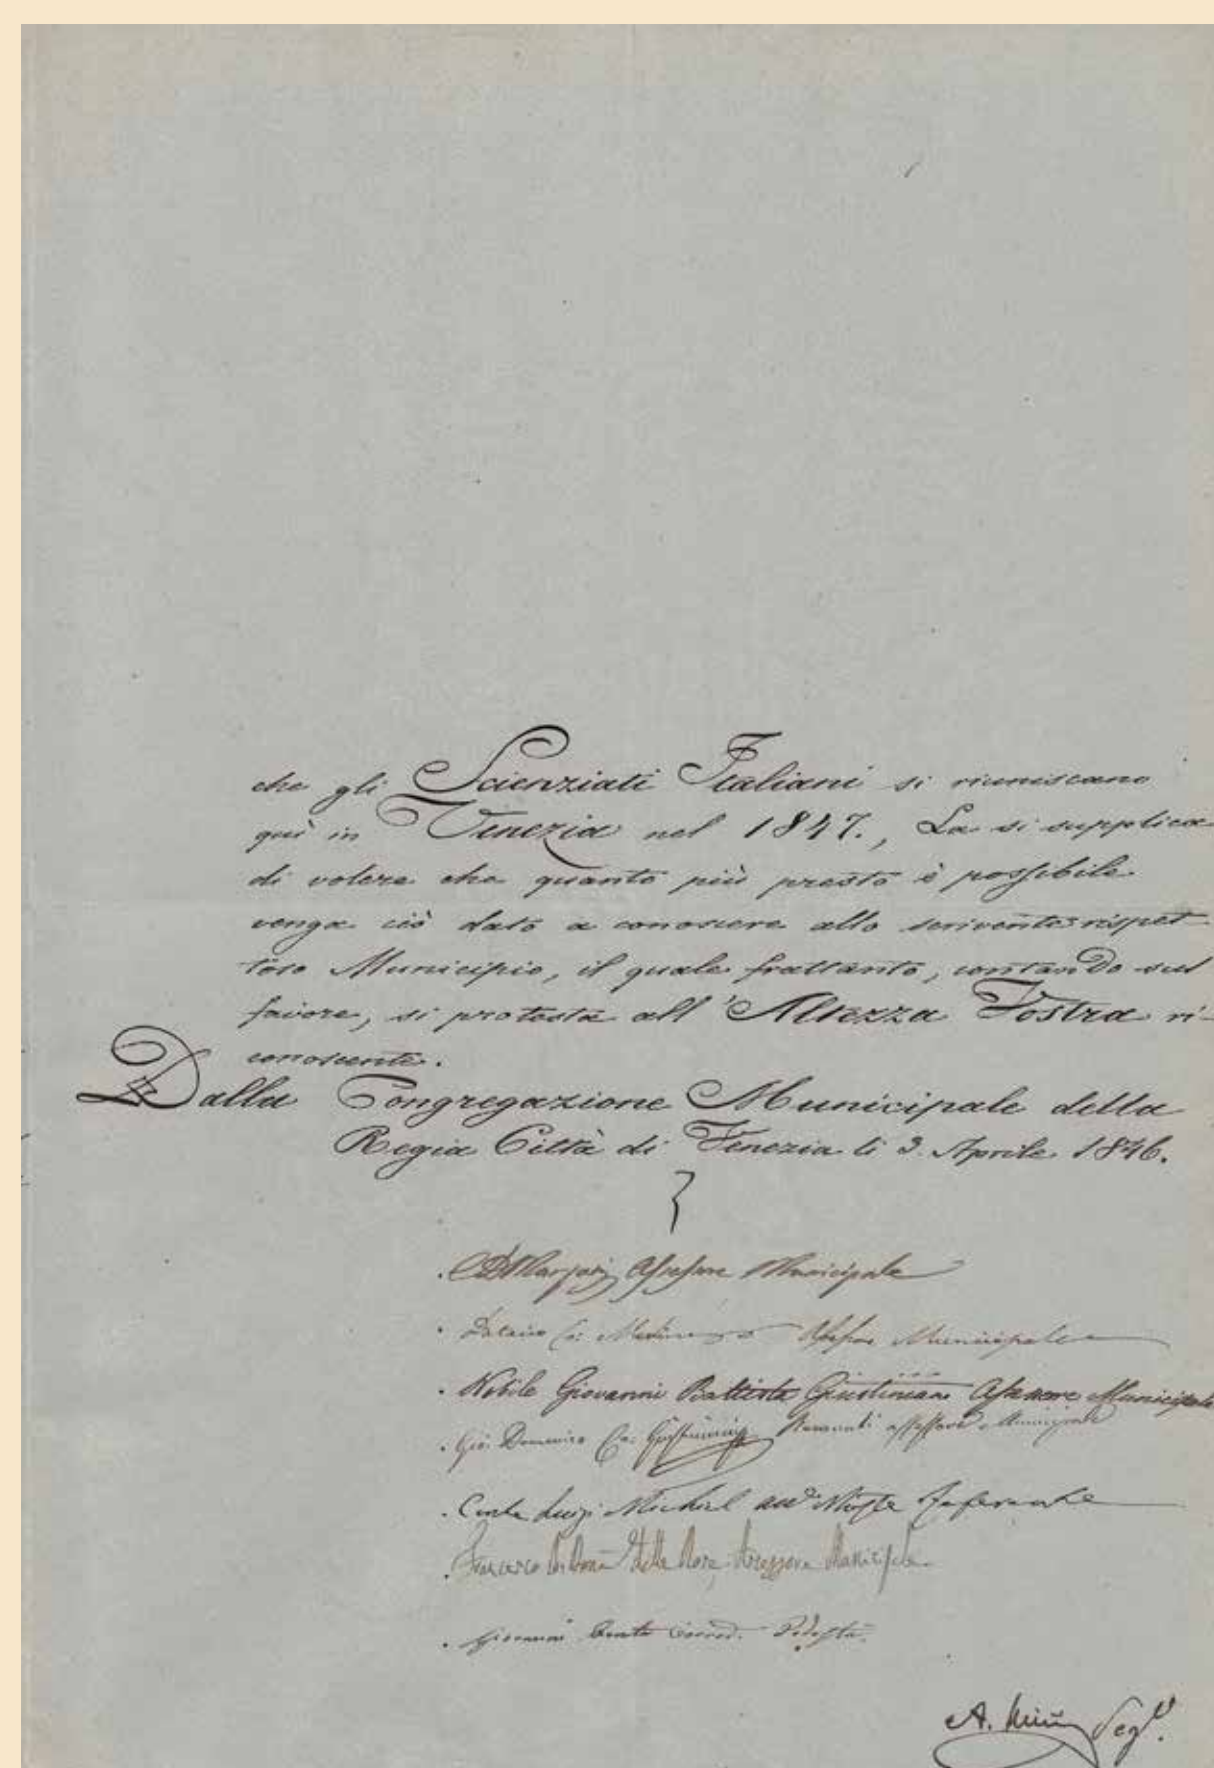 che gli Scienziati Italiani si riuniscano
quì in Venezia nel 1847., La si supplica
di volere che quanto più presto è possibile
venga ciò dato a conoscere allo scrivente rispet-
toso Municipio, il quale frattanto, contando sul
favore, si protesta all'Altezza Vostra ri-
conoscente.
Dalla Congregazione Municipale della
Regia Città di Venezia li 3. Aprile 1846.
Assessore Municipale
Municipale
Nobile Giovanni Battista Giustinian Assessore Municipale
Gio: Domenico Co: Giustinian Recanati assessore Municipale
Conte Luigi Michiel
Francesco Donà Dalle Rose Assessore Municipale
Giovanni Conte Correr. Podestà.
A. Segr.º